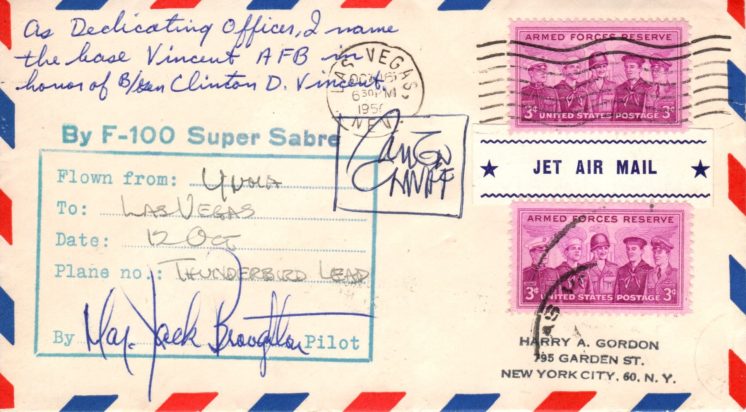 As Dedicating Officer, I name
the base Vincent AFB in
honor of B/Gen Clinton D. Vincent.
LAS VEGAS,
OCT 16
6 30 PM
1956
NEV
By F-100 Super Sabre
Flown from: YUMA
To: LAS VEGAS
Date: 12 Oct
Plane no.: THUNDERBIRD LEAD
By Maj. Jack Broughton Pilot
ARMED FORCES RESERVE
3¢ 3¢
UNITED STATES POSTAGE
JET AIR MAIL
ARMED FORCES RESERVE
3¢ 3¢
UNITED STATES POSTAGE
HARRY A. GORDON
795 GARDEN ST.
NEW YORK CITY, 60. N. Y.